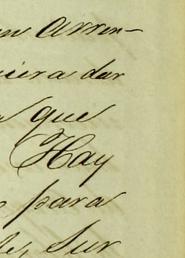 un arren-
iera dar
que
Hay
para
Sur